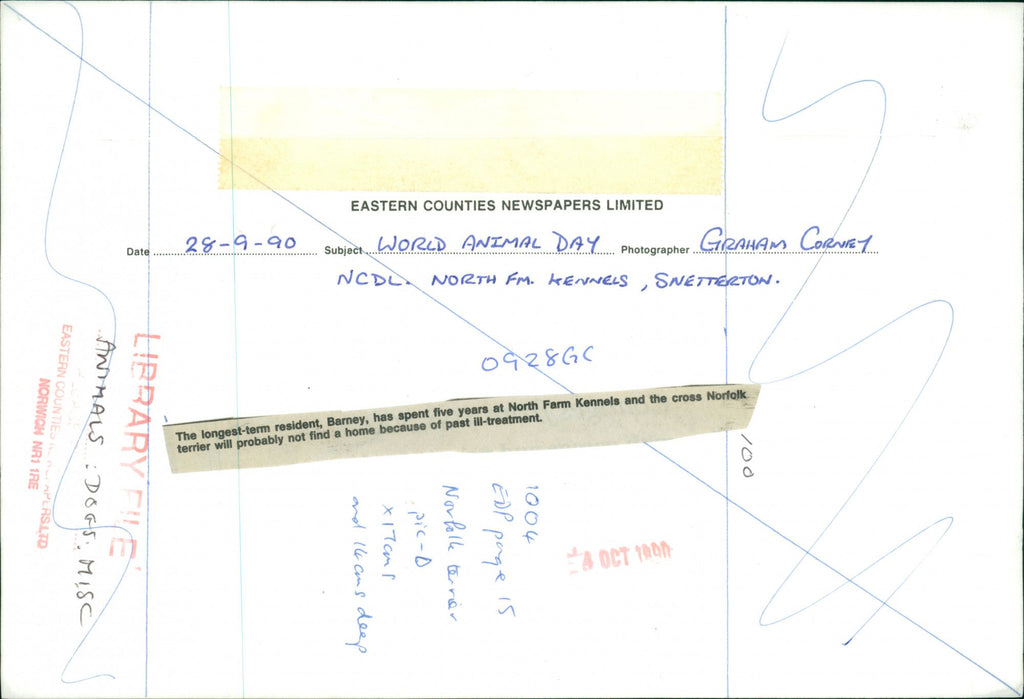 EASTERN COUNTIES NEWSPAPERS LIMITED
Date 28-9-90 Subject WORLD ANIMAL DAY Photographer GRAHAM CORNEY
NCDL. NORTH FM. KENNELS, SNETTERTON.
0928GC
The longest-term resident, Barney, has spent five years at North Farm Kennels and the cross Norfolk
terrier will probably not find a home because of past ill-treatment.
100
1004
EDP page 15
Norfolk terrier
pic-D
x 17cms
and 14cms deep
4 OCT 1990
LIBRARY FILE
ANIMALS: DOGS: MISC
EASTERN COUNTIES NEWSPAPERS LTD
NORWICH NR1 1RE